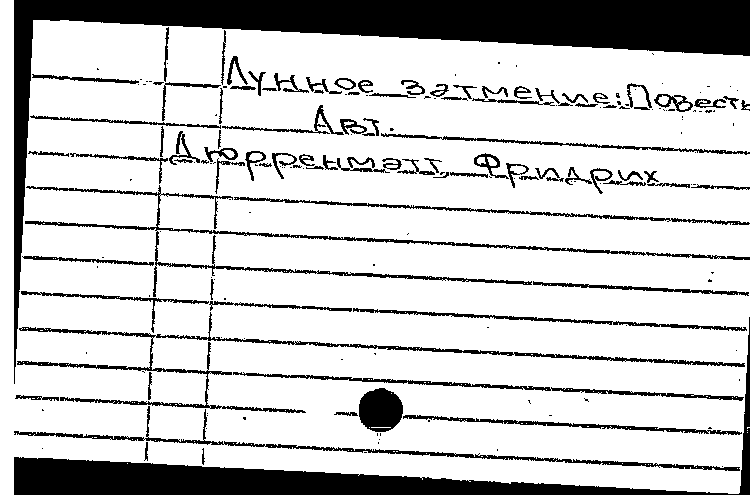 Лунное затмение: Повесть
Авт.
Дюрренматт, Фридрих